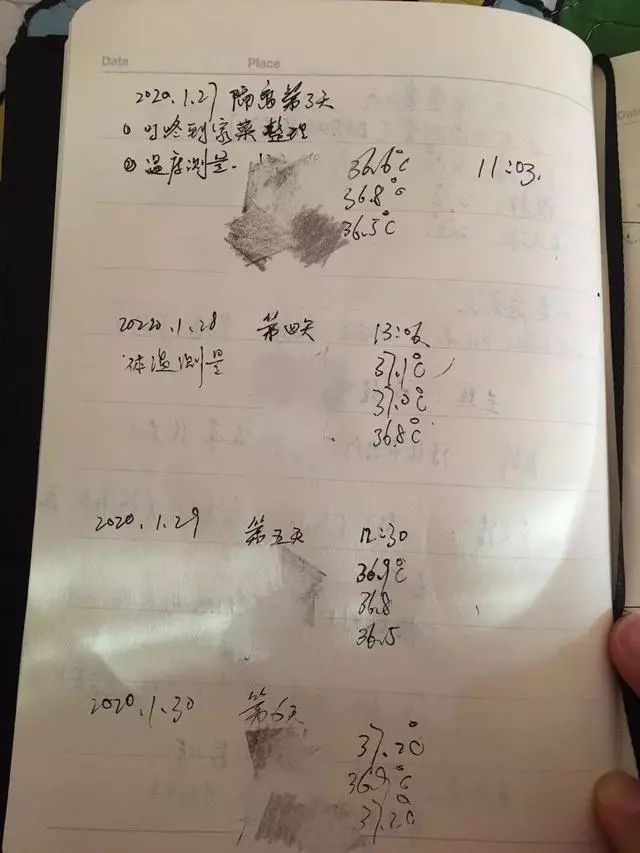 Date Place
2020.1.27 隔离第3天
① 叮咚到家菜整理
② 温度测量. 36.6°C 11:03.
36.8°C
36.5°C
2020.1.28 第四天
体温测量 37.1°C
37.0°C
36.8°C
2020.1.29 第五天 12:30
36.9°C
36.8
36.5
2020.1.30 第6天
37.2°C
36.9°C
37.2°C